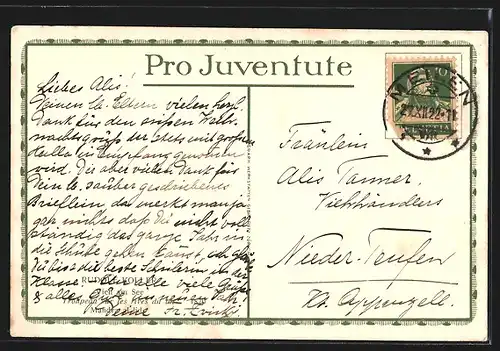 Pro Juventute
Liebes Alis!
Deinen lb. Eltern vielen herzl.
Dank für den süssen Weih-
nachtsgruss der stets mit grossem
Halla in Empfang genommen
wird. Dir aber vielen Dank für
Dein lb. sauber geschriebenes
Brieflein, da merkt man ja
gar nichts dass du nicht voll-
ständig das ganze Jahr in
die Schule gehen kannst, oder
du bist die beste Schülerin in der
Klasse. viele Grüsse
& alles Gute
Deine
RUDOLF KOLLER
MEILEN
21.XII.22
HELVETIA
10
Fräulein
Alis Tanner,
Viehhändlers
Nieder-Teufen
Kt. Appenzell.